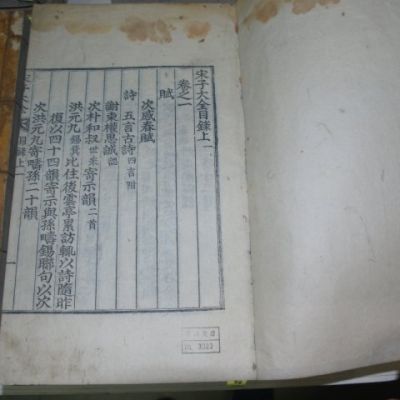 宋子大全目錄上
卷之一
賦
次感春賦
詩 五言古詩 四言附
謝東權思誠 諰
次朴和叔 世采 寄示韻 二首
洪元九 錫箕 比住後雲亭累訪輒以詩隨昨
復以四十四韻寄示與孫疇錫聯句以次
次洪元九寄疇孫二十韻
目錄上